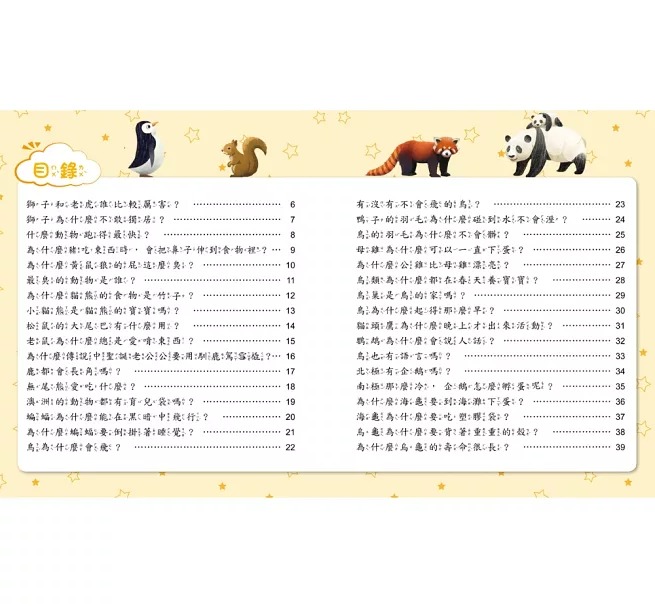 目錄
獅子和老虎誰比較厲害？ 6
獅子為什麼不敢獨居？ 7
什麼動物跑得最快？ 8
為什麼豬吃東西時，會把鼻子伸到食物裡？ 9
為什麼黃鼠狼的屁這麼臭？ 10
最臭的動物是誰？ 11
為什麼貓熊的食物是竹子？ 12
小熊是貓熊的寶寶嗎？ 13
松鼠的大尾巴有什麼用？ 14
老鼠為什麼總是愛啃東西？ 15
為什麼傳說中聖誕老公公要用馴鹿駕雪橇？ 16
鹿都會長角嗎？ 17
無尾熊愛吃什麼？ 18
澳洲的動物都有育兒袋嗎？ 19
蝙蝠為什麼能在黑暗中飛行？ 20
為什麼蝙蝠要倒掛著睡覺？ 21
鳥為什麼會飛？ 22
有沒有不會飛的鳥？ 23
鴨子的羽毛為什麼碰到水不會溼？ 24
鳥的羽毛為什麼不會髒？ 25
母雞為什麼可以一直下蛋？ 26
為什麼公雞比母雞漂亮？ 27
鳥類為什麼都在春天養寶寶？ 28
鳥巢是鳥的家嗎？ 29
鳥為什麼起得那麼早？ 30
貓頭鷹為什麼晚上才出來活動？ 31
鸚鵡為什麼會說人話？ 32
鳥也有語言嗎？ 33
北極有企鵝嗎？ 34
南極那麼冷，企鵝怎麼孵蛋呢？ 35
為什麼海龜要到海灘下蛋？ 36
海龜為什麼要吃塑膠袋？ 37
烏龜為什麼要背著重重的殼？ 38
為什麼烏龜的壽命很長？ 39